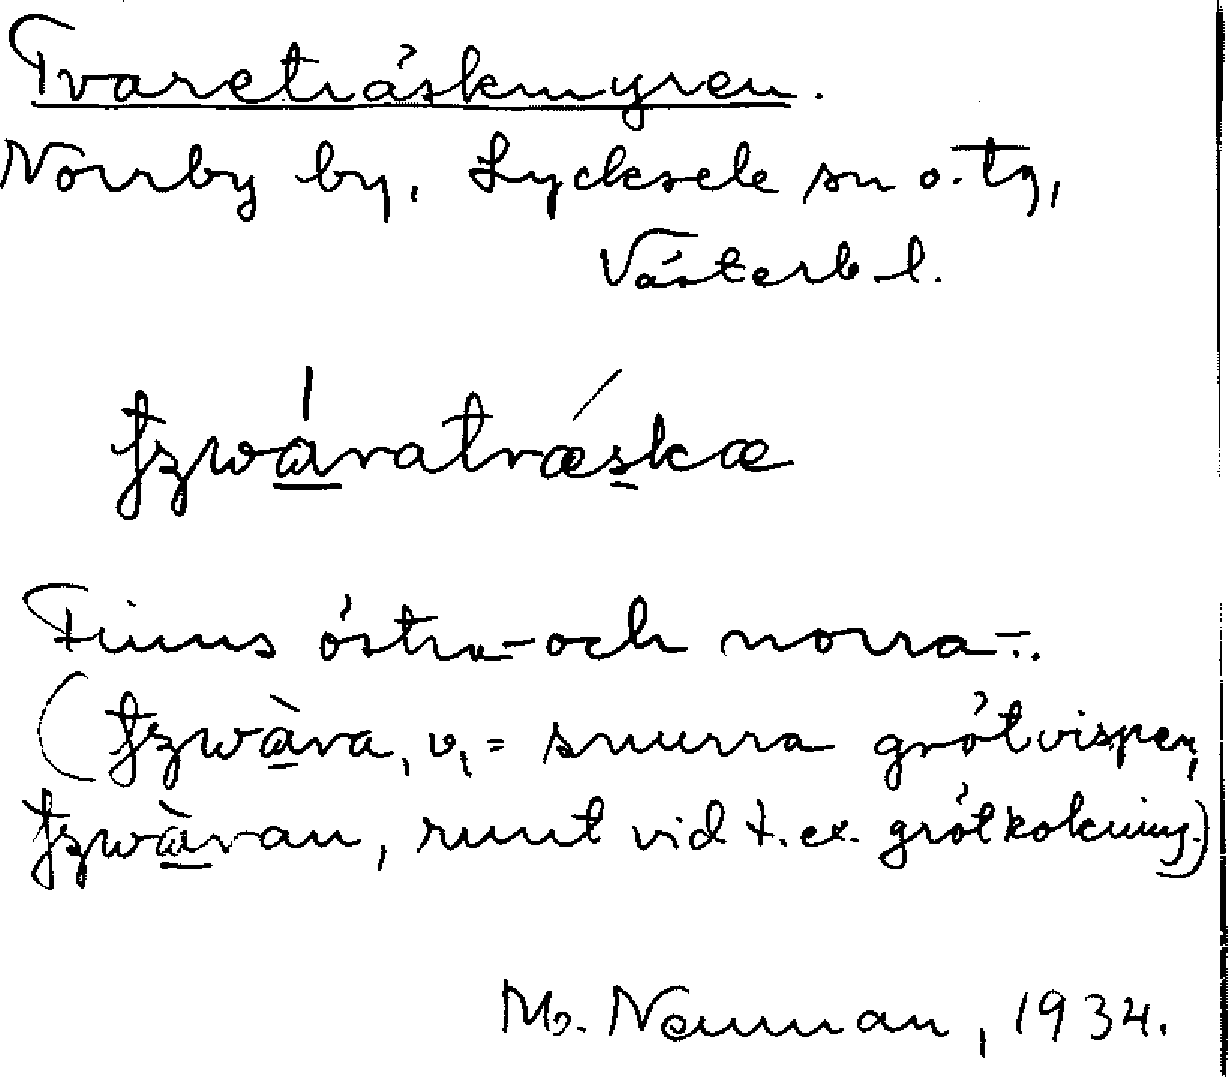 Tvareträskmyren.
Norrby by, Lycksele sn o. tg,
Västerb. l.
Finns östra- och norra-.
v. = snurra grötvispen,
runt vid t. ex. grötkokning.)
M. Neuman, 1934.